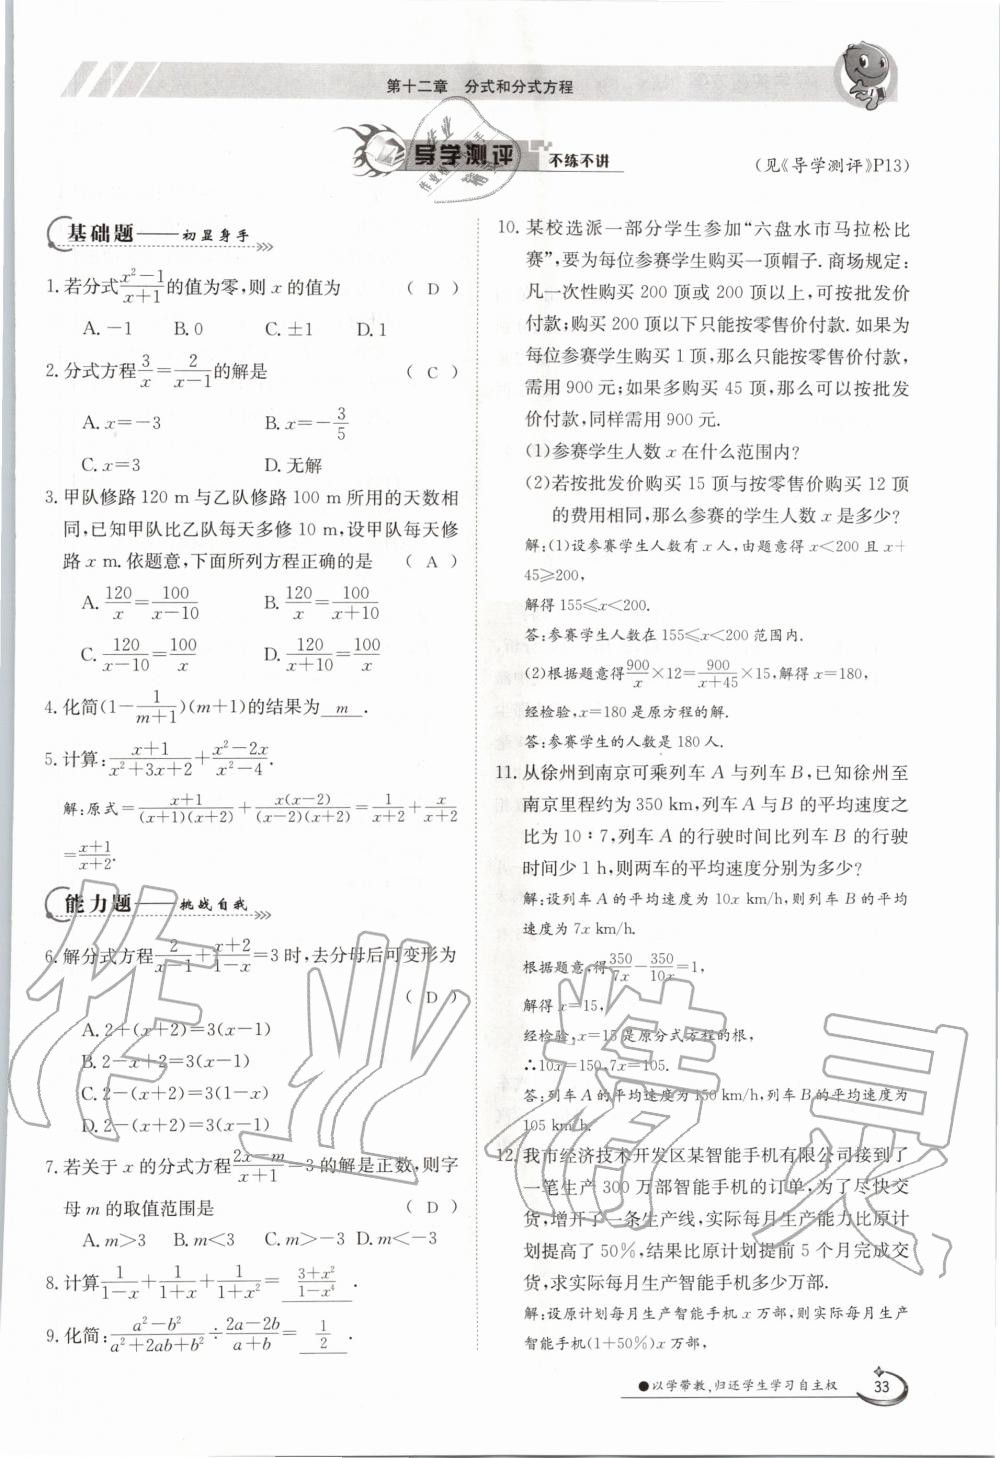 第十二章　分式和分式方程
导学测评 不练不讲
(见《导学测评》P13)
基础题——初显身手
1. 若分式(x²－1)/(x＋1)的值为零,则 x 的值为 ( D )
A. －1 B. 0 C. ±1 D. 1
2. 分式方程3/x＝2/(x－1)的解是 ( C )
A. x＝－3 B. x＝－3/5
C. x＝3 D. 无解
3. 甲队修路 120 m 与乙队修路 100 m 所用的天数相
同,已知甲队比乙队每天多修 10 m,设甲队每天修
路 x m. 依题意,下面所列方程正确的是 ( A )
A. 120/x＝100/(x－10) B. 120/x＝100/(x＋10)
C. 120/(x－10)＝100/x D. 120/(x＋10)＝100/x
4. 化简(1－1/(m＋1))(m＋1)的结果为 m .
5. 计算:(x＋1)/(x²＋3x＋2)＋(x²－2x)/(x²－4).
解:原式＝(x＋1)/((x＋1)(x＋2))＋x(x－2)/((x－2)(x＋2))＝1/(x＋2)＋x/(x＋2)
＝(x＋1)/(x＋2).
能力题——挑战自我
6. 解分式方程2/(x－1)＋(x＋2)/(1－x)＝3时,去分母后可变形为
( D )
A. 2＋(x＋2)＝3(x－1)
B. 2－x＋2＝3(x－1)
C. 2－(x＋2)＝3(1－x)
D. 2－(x＋2)＝3(x－1)
7. 若关于 x 的分式方程(2x－m)/(x＋1)＝3的解是正数,则字
母 m 的取值范围是 ( D )
A. m＞3 B. m＜3 C. m＞－3 D. m＜－3
8. 计算1/(1－x)＋1/(1＋x)＋1/(1＋x²)＝ (3＋x²)/(1－x⁴) .
9. 化简:(a²－b²)/(a²＋2ab＋b²)÷(2a－2b)/(a＋b)＝ 1/2 .
10. 某校选派一部分学生参加“六盘水市马拉松比
赛”,要为每位参赛学生购买一顶帽子. 商场规定:
凡一次性购买 200 顶或 200 顶以上,可按批发价
付款;购买 200 顶以下只能按零售价付款. 如果为
每位参赛学生购买 1 顶,那么只能按零售价付款,
需用 900 元;如果多购买 45 顶,那么可以按批发
价付款,同样需用 900 元.
(1)参赛学生人数 x 在什么范围内?
(2)若按批发价购买 15 顶与按零售价购买 12 顶
的费用相同,那么参赛的学生人数 x 是多少?
解:(1)设参赛学生人数有 x 人,由题意得 x＜200 且 x＋
45≥200,
解得 155≤x＜200.
答:参赛学生人数在 155≤x＜200 范围内.
(2)根据题意得900/x×12＝900/(x＋45)×15,解得 x＝180,
经检验,x＝180 是原方程的解.
答:参赛学生的人数是 180 人.
11. 从徐州到南京可乘列车 A 与列车 B,已知徐州至
南京里程约为 350 km,列车 A 与 B 的平均速度之
比为 10∶7,列车 A 的行驶时间比列车 B 的行驶
时间少 1 h,则两车的平均速度分别为多少?
解:设列车 A 的平均速度为 10x km/h,则列车 B 的平均
速度为 7x km/h.
根据题意,得350/7x－350/10x＝1,
解得 x＝15,
经检验,x＝15 是原分式方程的根,
∴10x＝150,7x＝105.
答:列车 A 的平均速度为 150 km/h,列车 B 的平均速度为
105 km/h.
12. 我市经济技术开发区某智能手机有限公司接到了
一笔生产 300 万部智能手机的订单,为了尽快交
货,增开了一条生产线,实际每月生产能力比原计
划提高了 50%,结果比原计划提前 5 个月完成交
货,求实际每月生产智能手机多少万部.
解:设原计划每月生产智能手机 x 万部,则实际每月生产
智能手机(1＋50%)x 万部,
●以学带教,归还学生学习自主权 33
作业精灵